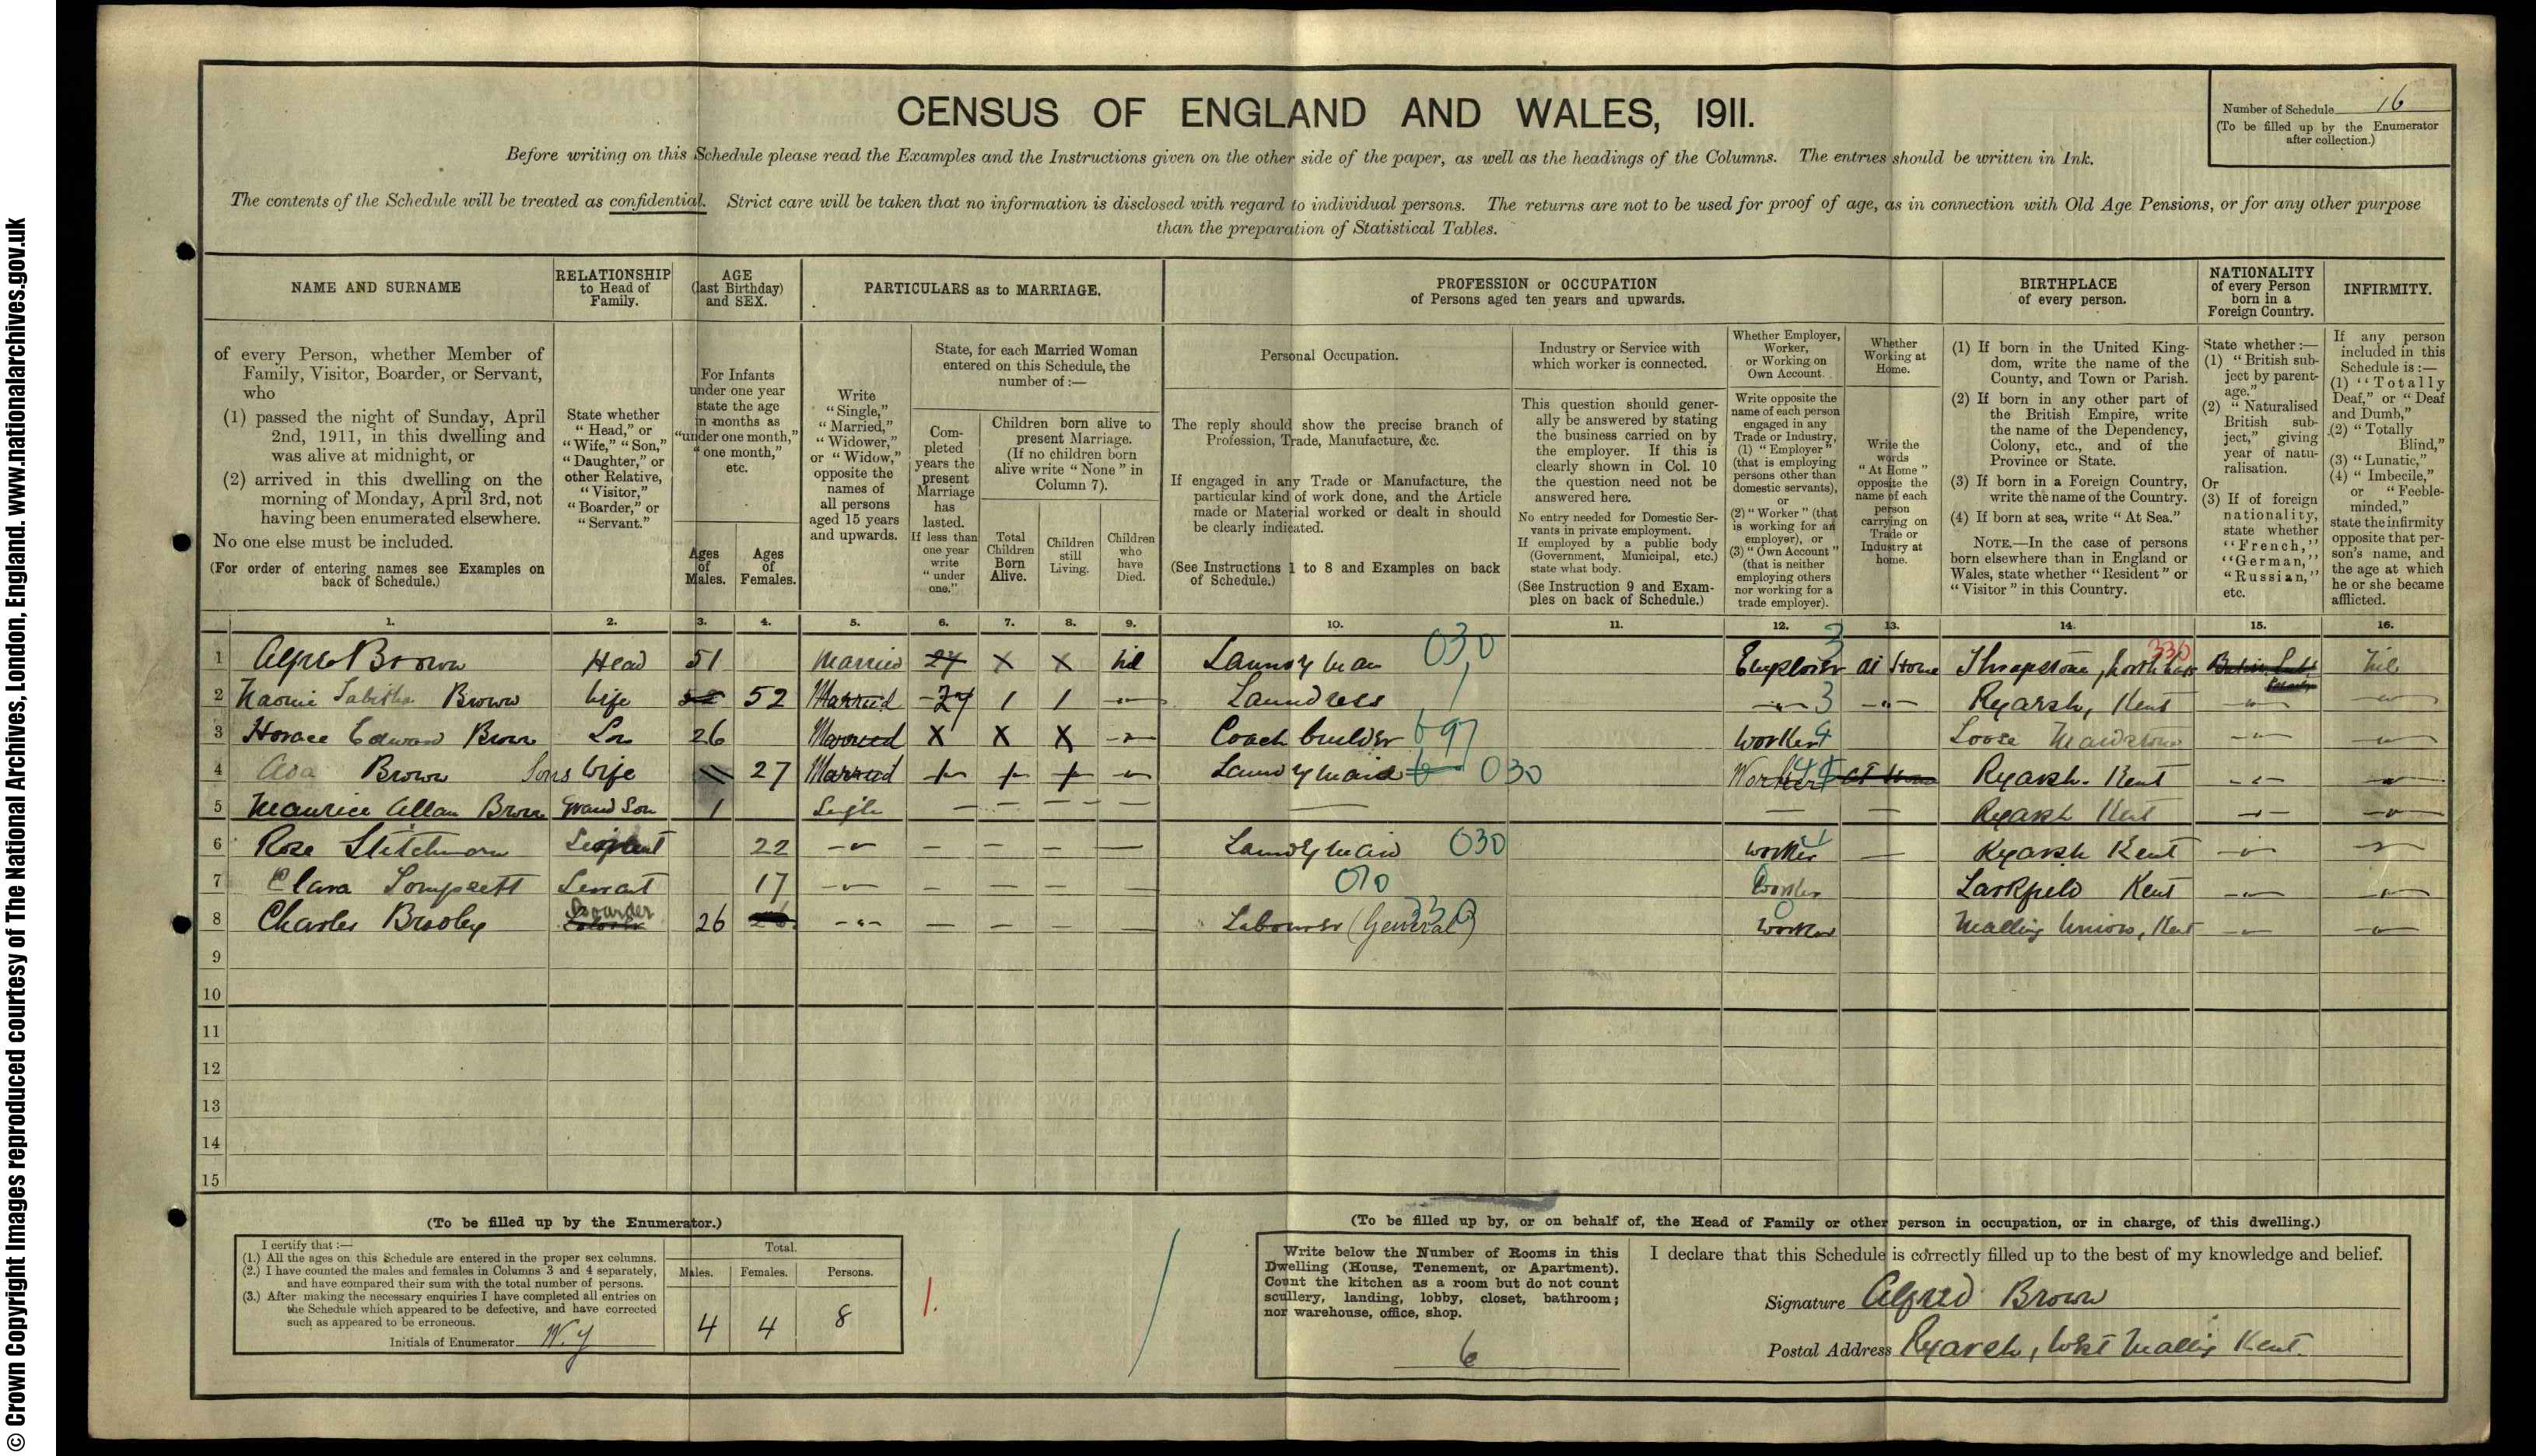 © Crown Copyright Images reproduced courtesy of The National Archives, London, England. www.nationalarchives.gov.uk
CENSUS OF ENGLAND AND WALES, 1911.
Number of Schedule 16
(To be filled up by the Enumerator after collection.)
Before writing on this Schedule please read the Examples and the Instructions given on the other side of the paper, as well as the headings of the Columns. The entries should be written in Ink.
The contents of the Schedule will be treated as confidential. Strict care will be taken that no information is disclosed with regard to individual persons. The returns are not to be used for proof of age, as in connection with Old Age Pensions, or for any other purpose
than the preparation of Statistical Tables.
NAME AND SURNAME
RELATIONSHIP to Head of Family.
AGE (last Birthday) and SEX.
PARTICULARS as to MARRIAGE.
PROFESSION or OCCUPATION
of Persons aged ten years and upwards.
BIRTHPLACE
of every person.
NATIONALITY of every Person born in a Foreign Country.
INFIRMITY.
of every Person, whether Member of
Family, Visitor, Boarder, or Servant,
who
(1) passed the night of Sunday, April
2nd, 1911, in this dwelling and
was alive at midnight, or
(2) arrived in this dwelling on the
morning of Monday, April 3rd, not
having been enumerated elsewhere.
No one else must be included.
(For order of entering names see Examples on
back of Schedule.)
State whether
"Head," or
"Wife," "Son,"
"Daughter," or
other Relative,
"Visitor,"
"Boarder," or
"Servant."
For Infants
under one year
state the age
in months as
"under one month,"
"one month,"
etc.
Ages of Males.
Ages of Females.
Write
"Single,"
"Married,"
"Widower,"
or "Widow,"
opposite the
names of
all persons
aged 15 years
and upwards.
State, for each Married Woman
entered on this Schedule, the
number of :—
Com-
pleted
years the
present
Marriage
has
lasted.
If less than
one year
write
"under
one."
Children born alive to
present Marriage.
(If no children born
alive write "None" in
Column 7).
Total Children Born Alive.
Children still Living.
Children who have Died.
Personal Occupation.
The reply should show the precise branch of
Profession, Trade, Manufacture, &c.
If engaged in any Trade or Manufacture, the
particular kind of work done, and the Article
made or Material worked or dealt in should
be clearly indicated.
(See Instructions 1 to 8 and Examples on back
of Schedule.)
Industry or Service with
which worker is connected.
This question should gener-
ally be answered by stating
the business carried on by
the employer. If this is
clearly shown in Col. 10
the question need not be
answered here.
No entry needed for Domestic Ser-
vants in private employment.
If employed by a public body
(Government, Municipal, etc.)
state what body.
(See Instruction 9 and Exam-
ples on back of Schedule.)
Whether Employer,
Worker,
or Working on
Own Account.
Write opposite the
name of each person
engaged in any
Trade or Industry,
(1) "Employer"
(that is employing
persons other than
domestic servants),
or
(2) "Worker" (that
is working for an
employer), or
(3) "Own Account"
(that is neither
employing others
nor working for a
trade employer).
Whether
Working at
Home.
Write the
words
"At Home"
opposite the
name of each
person
carrying on
Trade or
Industry at
home.
(1) If born in the United King-
dom, write the name of the
County, and Town or Parish.
(2) If born in any other part of
the British Empire, write
the name of the Dependency,
Colony, etc., and of the
Province or State.
(3) If born in a Foreign Country,
write the name of the Country.
(4) If born at sea, write "At Sea."
NOTE.—In the case of persons
born elsewhere than in England or
Wales, state whether "Resident" or
"Visitor" in this Country.
State whether :—
(1) "British sub-
ject by parent-
age,"
(2) "Naturalised
British sub-
ject," giving
year of natu-
ralisation.
Or
(3) If of foreign
nationality,
state whether
"French,"
"German,"
"Russian,"
etc.
If any person
included in this
Schedule is :—
(1) "Totally
Deaf," or "Deaf
and Dumb,"
(2) "Totally
Blind,"
(3) "Lunatic,"
(4) "Imbecile,"
or "Feeble-
minded,"
state the infirmity
opposite that per-
son's name, and
the age at which
he or she became
afflicted.
1. 2. 3. 4. 5. 6. 7. 8. 9. 10. 11. 12. 13. 14. 15. 16.
1 Alfred Brown Head 51 Married 27 X X nil Laundry Man 030 Employer 3 At Home Thrapstone, 330 Nil
2 Naomi Tabitha Brown Wife 52 Married 27 1 1 Laundress 3 Ryarsh, Kent
3 Horace Edward Brown Son 26 Married X X X Coach builder 697 Worker 4 Loose Maidstone
4 Ada Brown Sons Wife 27 Married Laundry Maid 030 Worker At Home Ryarsh. Kent
5 Maurice Allan Brown Grand Son 1 Single Ryarsh Kent
6 Rose Servant 22 Laundry Maid 030 Worker Ryarsh Kent
7 Clara Servant 17 010 Worker Larkfield Kent
8 Charles Boarder 26 Labourer (General) Worker Malling Union, Kent
9
10
11
12
13
14
15
(To be filled up by the Enumerator.)
I certify that :—
(1.) All the ages on this Schedule are entered in the proper sex columns.
(2.) I have counted the males and females in Columns 3 and 4 separately,
and have compared their sum with the total number of persons.
(3.) After making the necessary enquiries I have completed all entries on
the Schedule which appeared to be defective, and have corrected
such as appeared to be erroneous.
Initials of Enumerator W.Y
Total.
Males. Females. Persons.
4 4 8
1.
(To be filled up by, or on behalf of, the Head of Family or other person in occupation, or in charge, of this dwelling.)
Write below the Number of Rooms in this
Dwelling (House, Tenement, or Apartment).
Count the kitchen as a room but do not count
scullery, landing, lobby, closet, bathroom;
nor warehouse, office, shop.
6
I declare that this Schedule is correctly filled up to the best of my knowledge and belief.
Signature Alfred Brown
Postal Address Ryarsh, West Malling Kent.